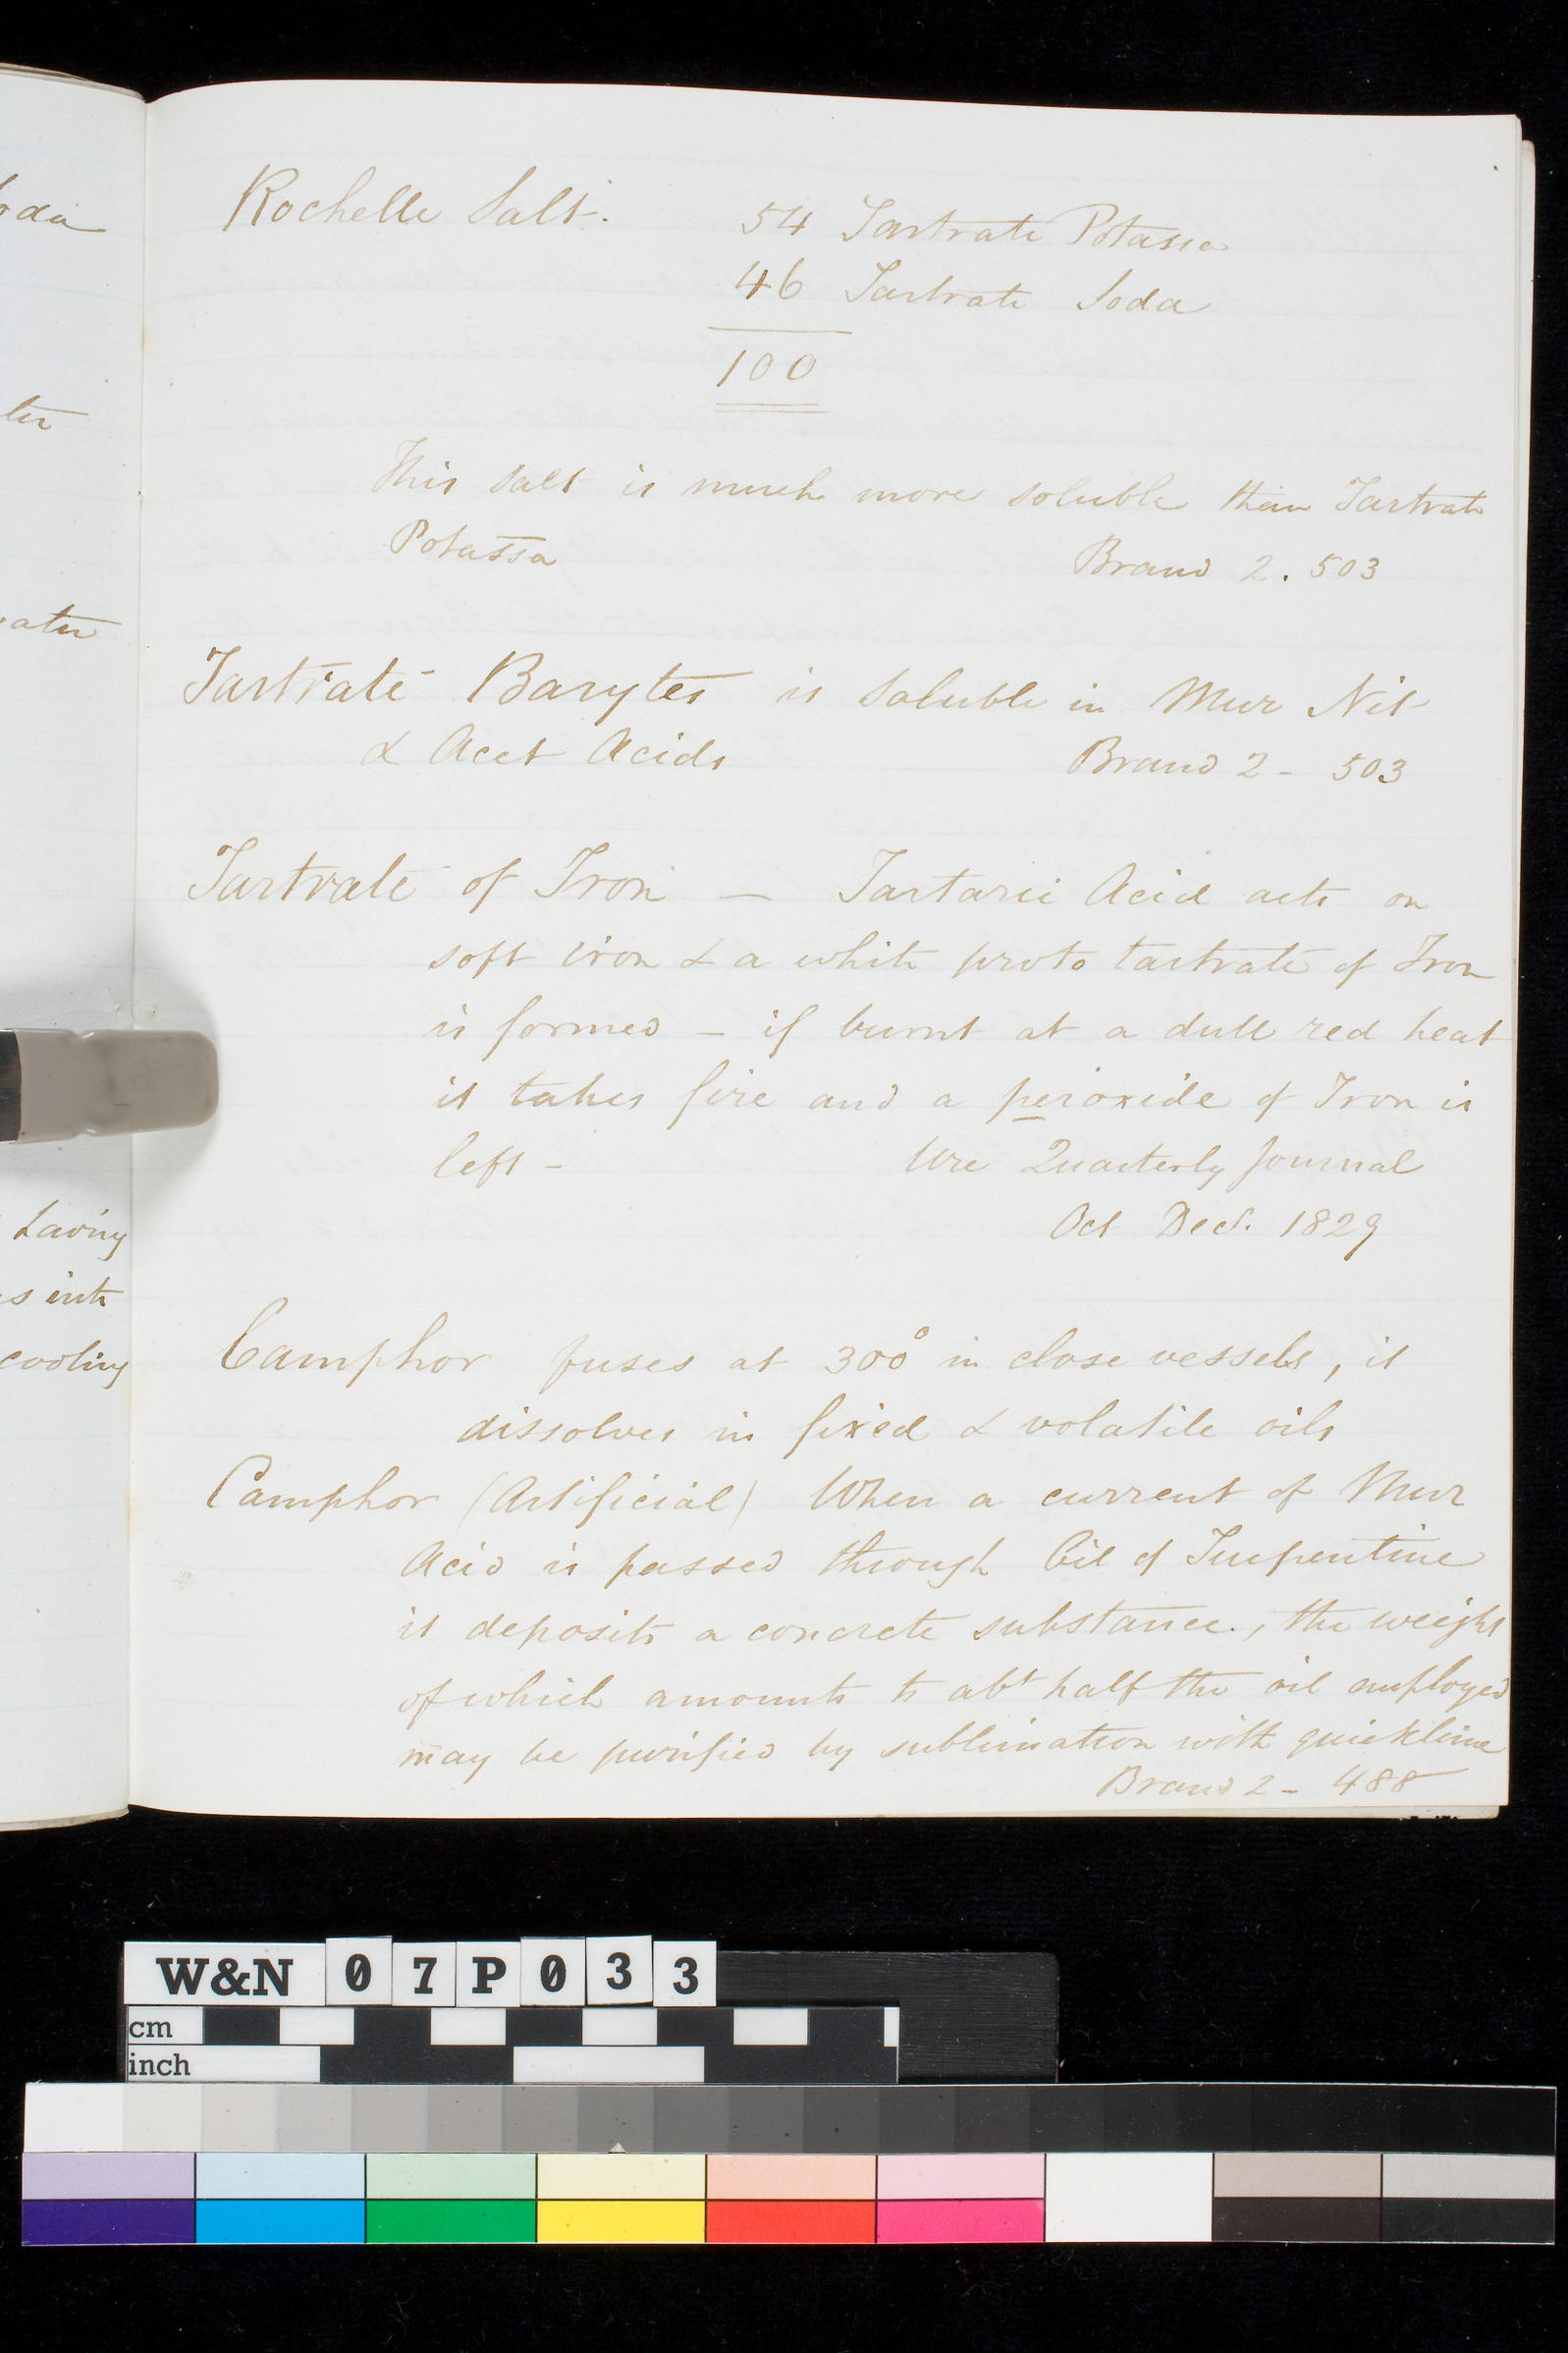 oda
ter
ater
having
s into
cooling
Rochelle Salt. 54 Tartrate Potassa
46 Tartrate Soda
100
This salt is much more soluble than Tartrate
Potassa Brand 2. 503
Tartrate Barytes is soluble in Mur Nit
& Acet Acids Brand 2 - 503
Tartrate of Iron — Tartaric Acid acts on
soft iron & a white proto tartrate of Iron
is formed - if burnt at a dull red heat
it takes fire and a peroxide of Iron is
left - Ure Quarterly Journal
Oct Dec. 1829
Camphor fuses at 300° in close vessels, it
dissolves in fixed & volatile oils
Camphor (Artificial) When a current of Mur
Acid is passed through Oil of Turpentine
it deposits a concrete substance, the weight
of which amounts to abt half the oil employed
may be purified by sublimation with quicklime
Brand 2 - 488
W&N 07P033
cm
inch